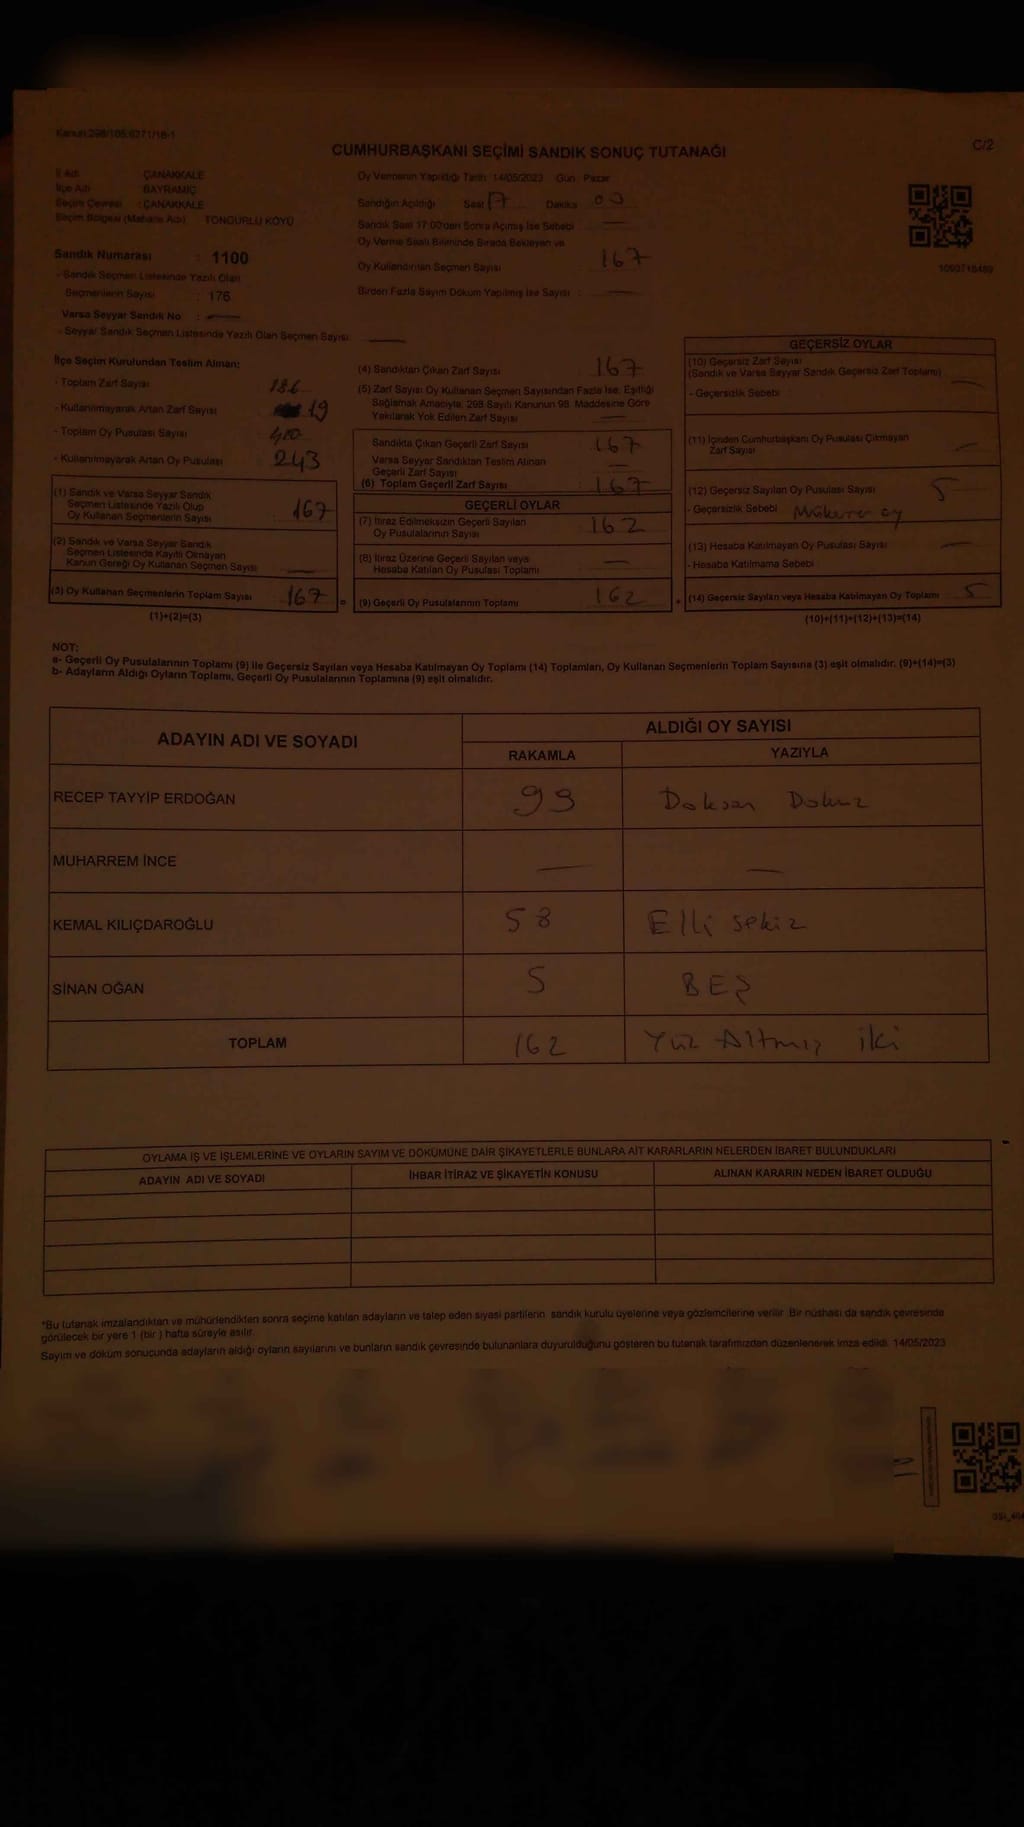 Kanun:298/105,6271/18-1
CUMHURBAŞKANI SEÇİMİ SANDIK SONUÇ TUTANAĞI
C/2
İl Adı : ÇANAKKALE
İlçe Adı : BAYRAMİÇ
Seçim Çevresi : ÇANAKKALE
Seçim Bölgesi (Mahalle Adı) : TONGURLU KÖYÜ
Sandık Numarası : 1100
- Sandık Seçmen Listesinde Yazılı Olan
Seçmenlerin Sayısı : 176
Varsa Seyyar Sandık No : —
- Seyyar Sandık Seçmen Listesinde Yazılı Olan Seçmen Sayısı: —
Oy Vermenin Yapıldığı Tarih: 14/05/2023 Gün : Pazar
Sandığın Açıldığı Saat 17 Dakika 00
Sandık Saat 17:00'den Sonra Açılmış İse Sebebi : —
Oy Verme Saati Bitiminde Sırada Bekleyen ve
Oy Kullandırılan Seçmen Sayısı : 167
Birden Fazla Sayım Döküm Yapılmış İse Sayısı : —
1090718489
İlçe Seçim Kurulundan Teslim Alınan:
- Toplam Zarf Sayısı 186
- Kullanılmayarak Artan Zarf Sayısı 19
- Toplam Oy Pusulası Sayısı 410
- Kullanılmayarak Artan Oy Pusulası 243
(1) Sandık ve Varsa Seyyar Sandık
Seçmen Listesinde Yazılı Olup
Oy Kullanan Seçmenlerin Sayısı : 167
(2) Sandık ve Varsa Seyyar Sandık
Seçmen Listesinde Kayıtlı Olmayan
Kanun Gereği Oy Kullanan Seçmen Sayısı : —
(3) Oy Kullanan Seçmenlerin Toplam Sayısı : 167
(1)+(2)=(3)
(4) Sandıktan Çıkan Zarf Sayısı 167
(5) Zarf Sayısı Oy Kullanan Seçmen Sayısından Fazla İse, Eşitliği
Sağlamak Amacıyla, 298 Sayılı Kanunun 98. Maddesine Göre
Yakılarak Yok Edilen Zarf Sayısı —
Sandıkta Çıkan Geçerli Zarf Sayısı : 167
Varsa Seyyar Sandıktan Teslim Alınan
Geçerli Zarf Sayısı —
(6) Toplam Geçerli Zarf Sayısı : 167
GEÇERLİ OYLAR
(7) İtiraz Edilmeksizin Geçerli Sayılan
Oy Pusulalarının Sayısı 162
(8) İtiraz Üzerine Geçerli Sayılan veya
Hesaba Katılan Oy Pusulası Toplamı : —
= (9) Geçerli Oy Pusulalarının Toplamı : 162
GEÇERSİZ OYLAR
(10) Geçersiz Zarf Sayısı
(Sandık ve Varsa Seyyar Sandık Geçersiz Zarf Toplamı) —
- Geçersizlik Sebebi :
(11) İçinden Cumhurbaşkanı Oy Pusulası Çıkmayan
Zarf Sayısı —
(12) Geçersiz Sayılan Oy Pusulası Sayısı 5
- Geçersizlik Sebebi : Mükerrer oy
(13) Hesaba Katılmayan Oy Pusulası Sayısı —
- Hesaba Katılmama Sebebi
+ (14) Geçersiz Sayılan veya Hesaba Katılmayan Oy Toplamı : 5
(10)+(11)+(12)+(13)=(14)
NOT:
a- Geçerli Oy Pusulalarının Toplamı (9) ile Geçersiz Sayılan veya Hesaba Katılmayan Oy Toplamı (14) Toplamları, Oy Kullanan Seçmenlerin Toplam Sayısına (3) eşit olmalıdır. (9)+(14)=(3)
b- Adayların Aldığı Oyların Toplamı, Geçerli Oy Pusulalarının Toplamına (9) eşit olmalıdır.
ADAYIN ADI VE SOYADI
ALDIĞI OY SAYISI
RAKAMLA YAZIYLA
RECEP TAYYİP ERDOĞAN 99 Doksan Dokuz
MUHARREM İNCE — —
KEMAL KILIÇDAROĞLU 58 Elli sekiz
SİNAN OĞAN 5 BEŞ
TOPLAM 162 Yüz Altmış iki
OYLAMA İŞ VE İŞLEMLERİNE VE OYLARIN SAYIM VE DÖKÜMÜNE DAİR ŞİKAYETLERLE BUNLARA AİT KARARLARIN NELERDEN İBARET BULUNDUKLARI
ADAYIN ADI VE SOYADI İHBAR İTİRAZ VE ŞİKAYETİN KONUSU ALINAN KARARIN NEDEN İBARET OLDUĞU
*Bu tutanak imzalandıktan ve mühürlendikten sonra seçime katılan adayların ve talep eden siyasi partilerin sandık kurulu üyelerine veya gözlemcilerine verilir. Bir nüshası da sandık çevresinde
görülecek bir yere 1 (bir) hafta süreyle asılır.
Sayım ve döküm sonucunda adayların aldığı oyların sayılarını ve bunların sandık çevresinde bulunanlara duyurulduğunu gösteren bu tutanak tarafımızdan düzenlenerek imza edildi. 14/05/2023